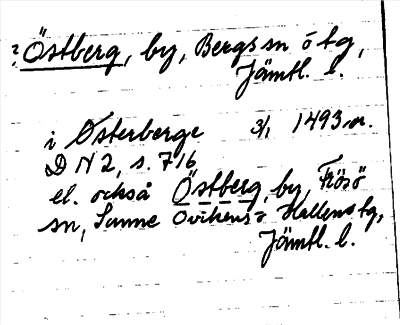 ? Östberg, by, Bergs sn o tg,
Jämtl. l.
i Østerberge 3/1 1493 a.
D N 2, s. 716
el. också Östberg, by, Frösö
sn, Sunne Ovikens o Hallens tg,
Jämtl. l.